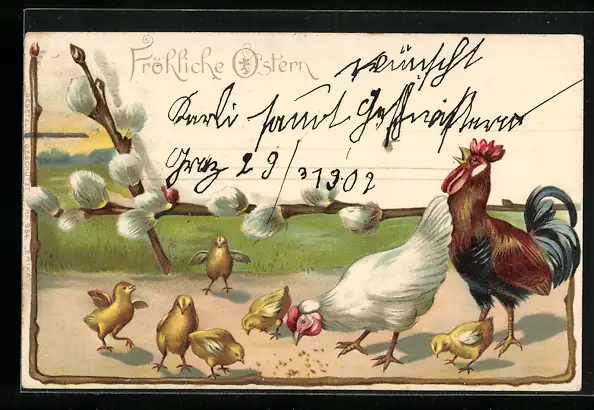 Fröhliche Ostern
wünscht
Karli samt Geschwistern
Graz 29/3 1902